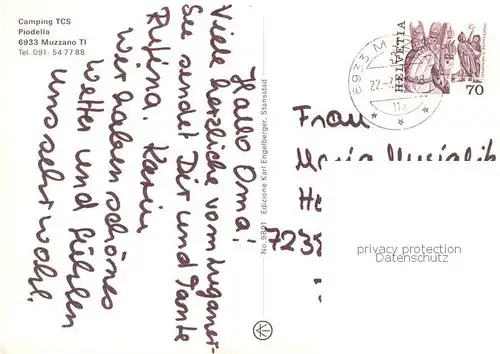 Camping TCS
Piodella
6933 Muzzano TI
Tel. 091 - 54 77 88
Hallo Oma!
Viele herzliche vom Luganer-
See sendet Dir und Tante
Karin
Wir haben schönes
Wetter und fühlen
uns sehr wohl.
No. 9891 Edizione Karl Engelberger, Stansstad
6933 M
22.
11a
HELVETIA
70
Frau
Maria
He
723
privacy protection
Datenschutz